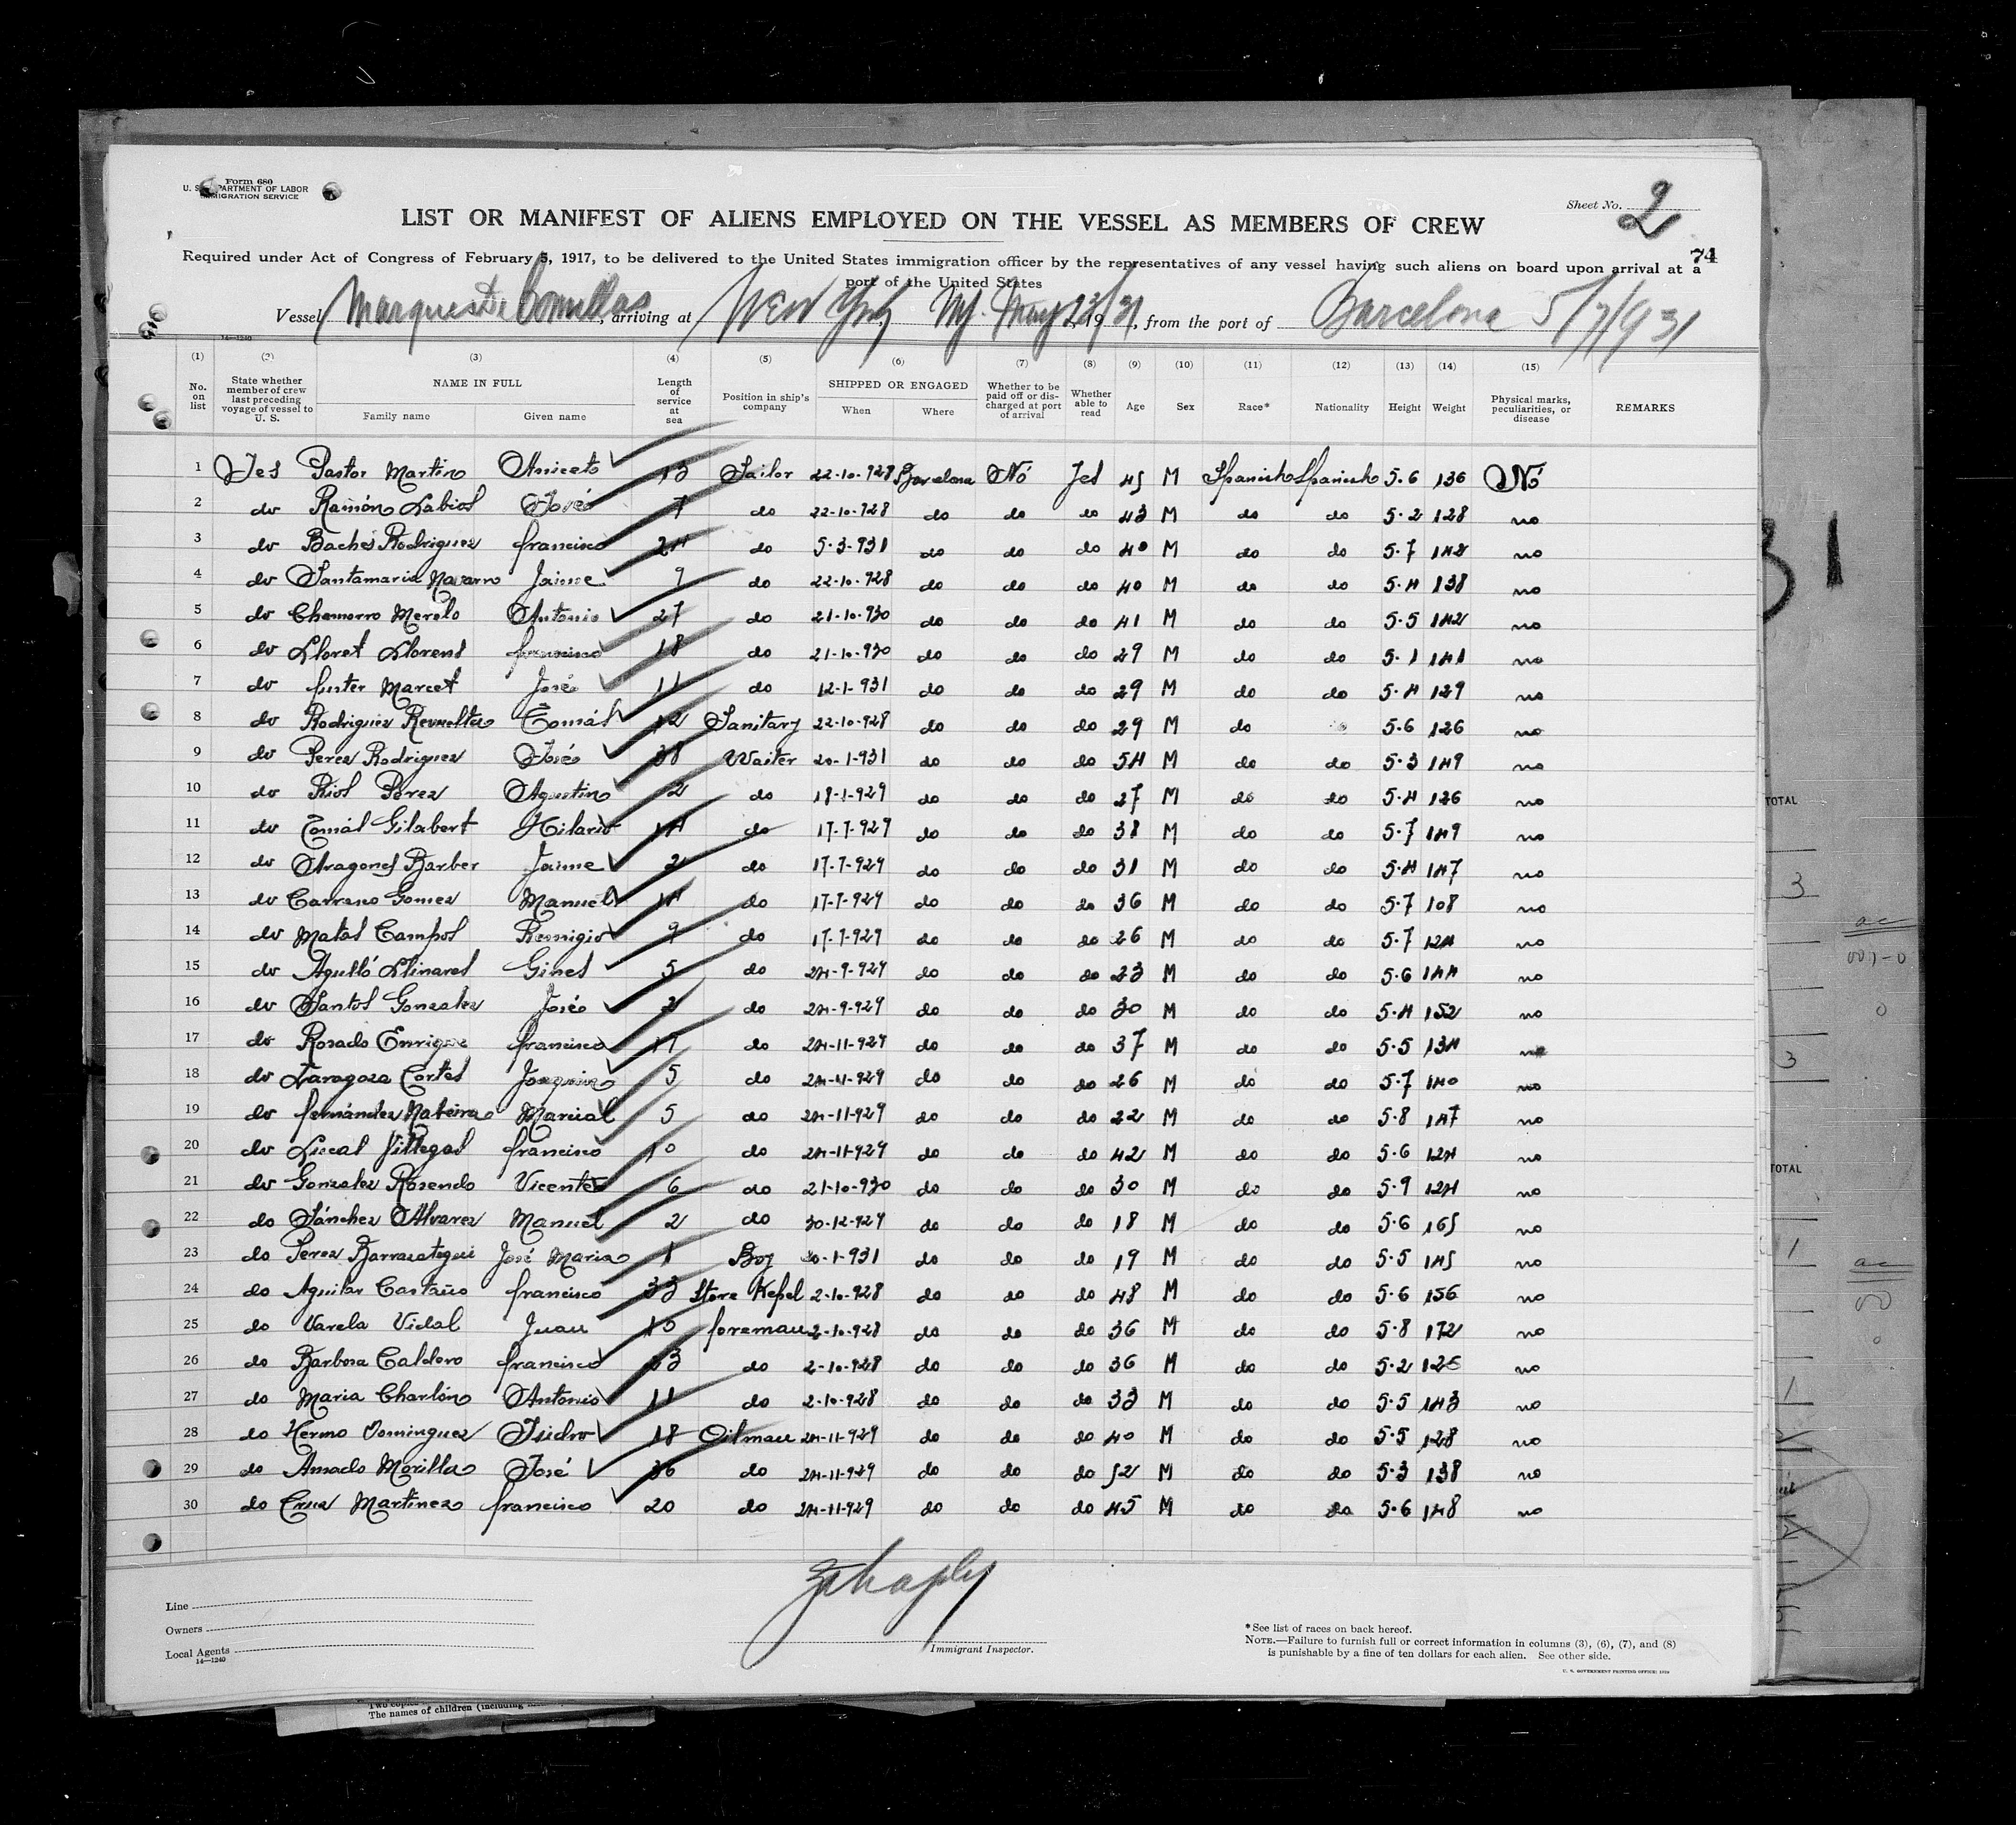 Form 680
U. S. DEPARTMENT OF LABOR
IMMIGRATION SERVICE
Sheet No. 2
LIST OR MANIFEST OF ALIENS EMPLOYED ON THE VESSEL AS MEMBERS OF CREW
74
Required under Act of Congress of February 5, 1917, to be delivered to the United States immigration officer by the representatives of any vessel having such aliens on board upon arrival at a
port of the United States
Vessel Marques de Comillas, arriving at New York NY. May 23/31, 19, from the port of Barcelona 5/7/931
14—1240
(1) (2) (3) (4) (5) (6) (7) (8) (9) (10) (11) (12) (13) (14) (15)
No. on list State whether member of crew last preceding voyage of vessel to U. S. NAME IN FULL Family name Given name Length of service at sea Position in ship's company SHIPPED OR ENGAGED When Where Whether to be paid off or discharged at port of arrival Whether able to read Age Sex Race* Nationality Height Weight Physical marks, peculiarities, or disease REMARKS
1 Yes Pastor Martin Aniceto 13 Sailor 22-10-928 Barcelona No Yes 45 M Spanish Spanish 5.6 136 No
2 do Ramón Labios José 7 do 22-10-928 do do do 43 M do do 5.2 128 no
3 do Baches Rodriguez francisco 24 do 5-3-931 do do do 40 M do do 5.7 142 no
4 do Santamaria Navarro Jaime 9 do 22-10-928 do do do 40 M do do 5.4 138 no
5 do Chamorro Merelo Antonio 27 do 21-10-930 do do do 41 M do do 5.5 142 no
6 do Lloret Llorens francisco 18 do 21-10-930 do do do 29 M do do 5.1 141 no
7 do fuster Marcet José 11 do 12-1-931 do do do 29 M do do 5.4 129 no
8 do Rodriguez Revuelta Tomás 12 Sanitary 22-10-928 do do do 29 M do 5.6 126 no
9 do Perez Rodriguez José 38 Waiter 20-1-931 do do do 54 M do do 5.3 149 no
10 do Riol Perez Agustin 2 do 18-1-929 do do do 27 M do do 5.4 126 no
11 do Tomás Gilabert Hilario 14 do 17-7-929 do do do 38 M do do 5.7 149 no
12 do Aragones Barber Jaime 2 do 17-7-929 do do do 31 M do do 5.4 147 no
13 do Carrano Gomez Manuel 14 do 17-7-929 do do do 36 M do do 5.7 108 no
14 do Matas Campos Remigio 9 do 17-7-929 do do do 26 M do do 5.7 124 no
15 do Agulló Llinares Gines 5 do 24-9-929 do do do 23 M do do 5.6 144 no
16 do Santos Gonzalez José 2 do 24-9-929 do do do 30 M do do 5.4 152 no
17 do Rosado Enrique francisco 17 do 24-11-929 do do do 37 M do do 5.5 134 no
18 do Zaragoza Cortes Joaquin 5 do 24-11-929 do do do 26 M do do 5.7 140 no
19 do fernández Mateira Marcial 5 do 24-11-929 do do do 22 M do do 5.8 147 no
20 do Villegas francisco 10 do 24-11-929 do do do 42 M do do 5.6 124 no
21 do Gonzalez Rosendo Vicente 6 do 21-10-930 do do do 30 M do do 5.9 124 no
22 do Sánchez Alvarez Manuel 2 do 30-12-929 do do do 18 M do do 5.6 165 no
23 do Perez Barrazategui José Maria 1 Boy 20-1-931 do do do 19 M do do 5.5 145 no
24 do Aguilar Castaño francisco 33 Store Kepel 2-10-928 do do do 48 M do do 5.6 156 no
25 do Varela Vidal Juan 15 foreman 2-10-928 do do do 36 M do do 5.8 172 no
26 do Barbosa Caldero francisco 23 do 2-10-928 do do do 36 M do do 5.2 126 no
27 do Maria Charlón Antonio 11 do 2-10-928 do do do 33 M do do 5.5 143 no
28 do Hermo Dominguez Isidro 18 Oilman 24-11-929 do do do 40 M do do 5.5 128 no
29 do Amado Morilla José 36 do 24-11-929 do do do 52 M do do 5.3 138 no
30 do Cruz Martinez francisco 20 do 24-11-929 do do do 45 M do do 5.6 148 no
Line
Owners
Local Agents
14—1240
Immigrant Inspector.
*See list of races on back hereof.
NOTE.—Failure to furnish full or correct information in columns (3), (6), (7), and (8)
is punishable by a fine of ten dollars for each alien. See other side.
U. S. GOVERNMENT PRINTING OFFICE: 1929
The names of children (including
31
TOTAL
3
3
TOTAL
1
1